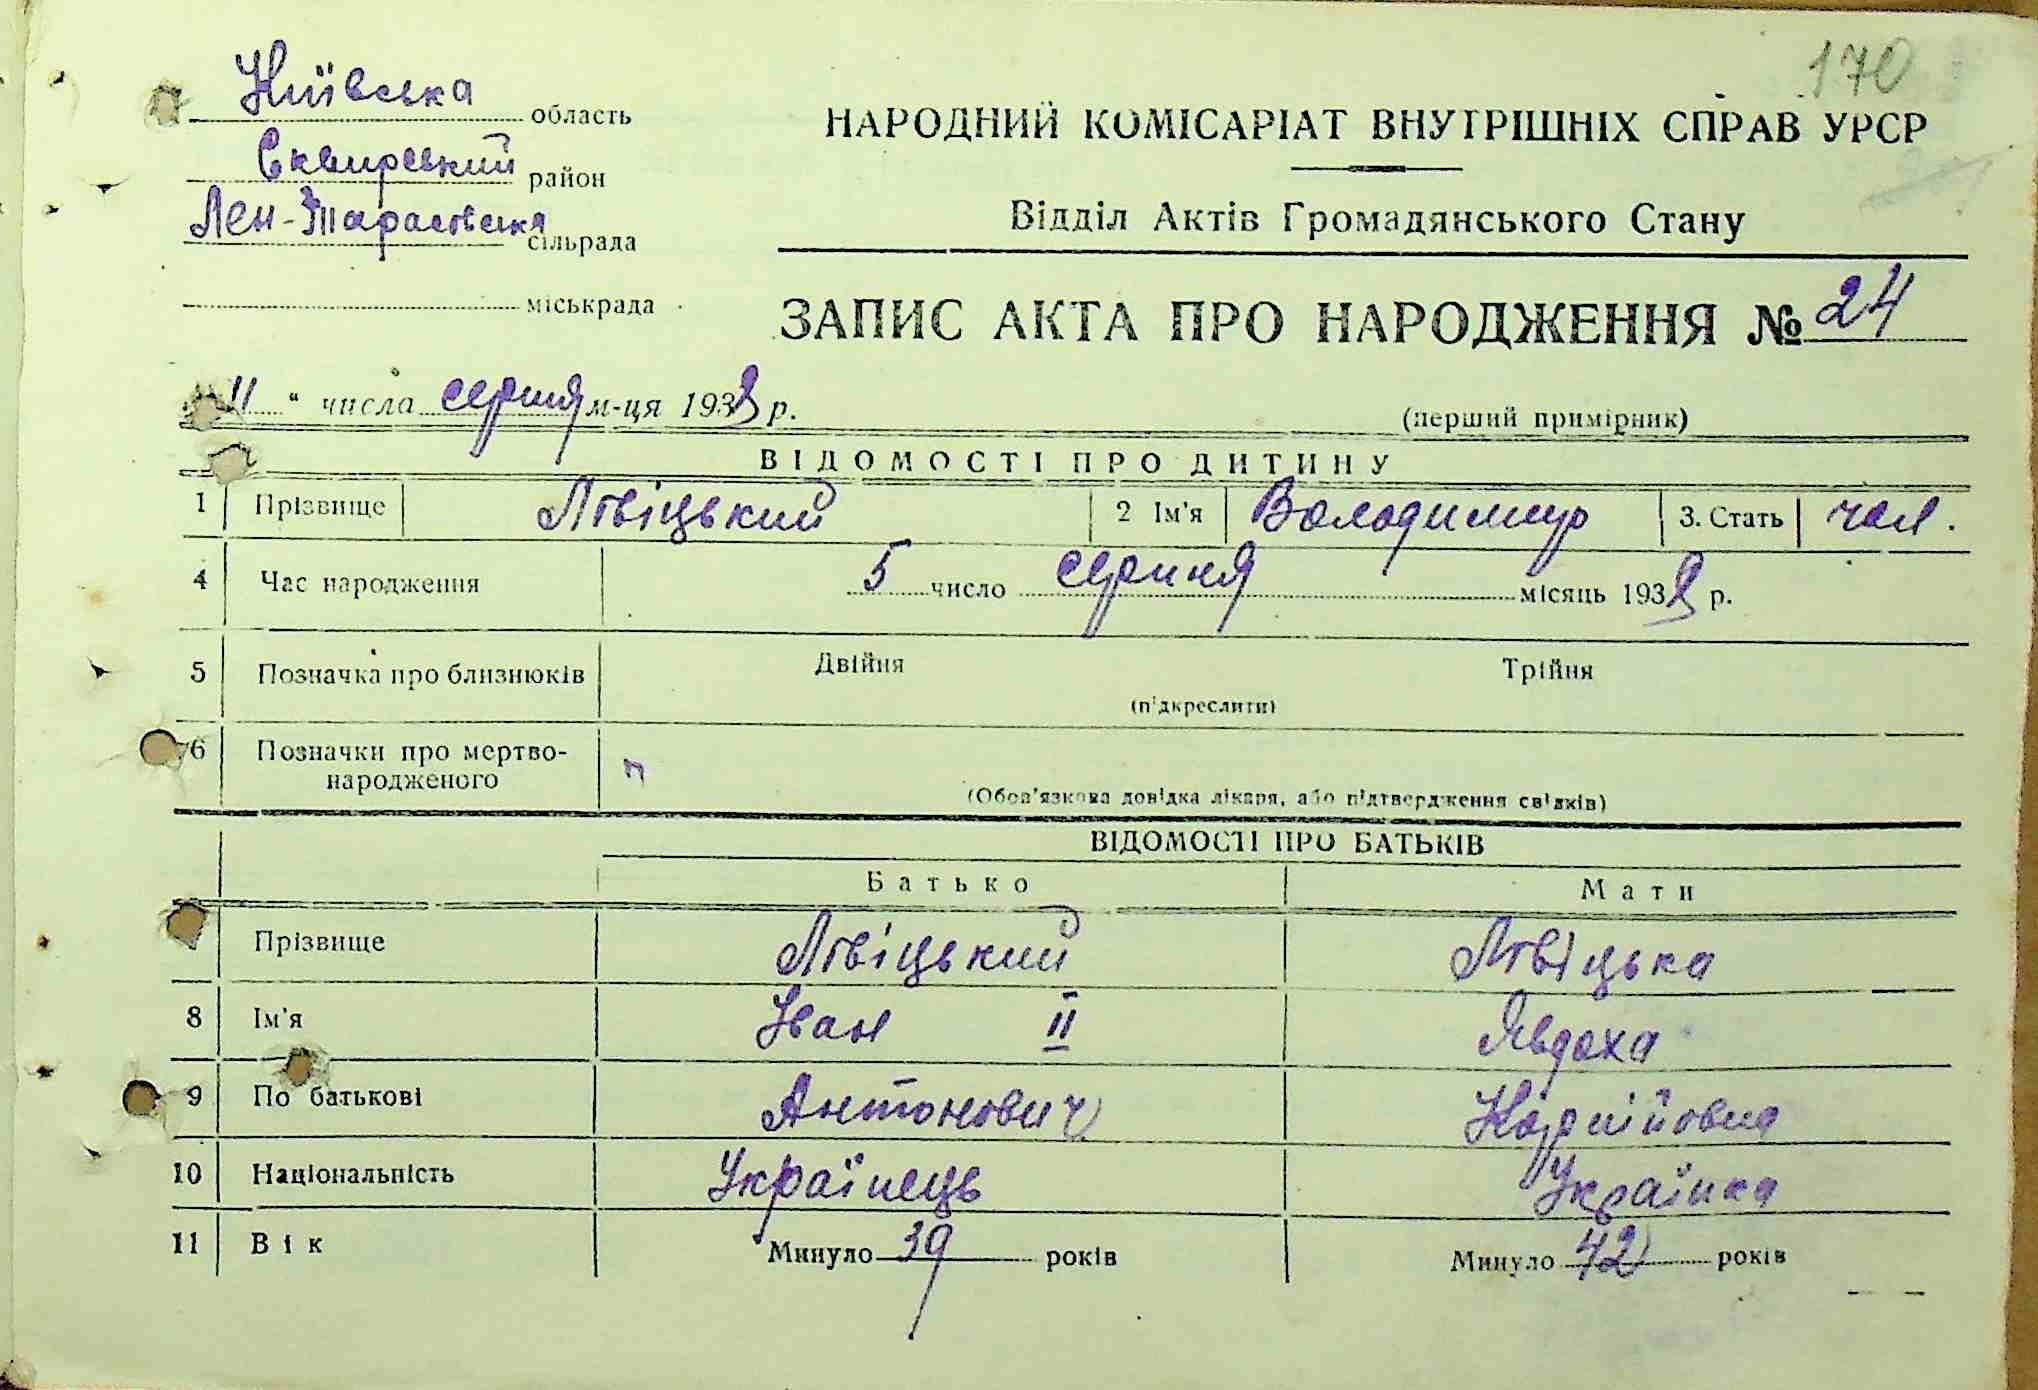 170
Київська область
Сквирський район
Лен-Тарасовська сільрада
міськрада
НАРОДНИЙ КОМІСАРІАТ ВНУТРІШНІХ СПРАВ УРСР
Відділ Актів Громадянського Стану
ЗАПИС АКТА ПРО НАРОДЖЕННЯ № 24
11 " числа серпня м-ця 1938 р.
(перший примірник)
ВІДОМОСТІ ПРО ДИТИНУ
1 Прізвище Лівіцький 2 Ім'я Володимир 3. Стать чол.
4 Час народження 5 число серпня місяць 1938 р.
5 Позначка про близнюків Двійня Трійня
(підкреслити)
6 Позначки про мертво-
народженого
(Обов'язкова довідка лікаря, або підтвердження свідків)
ВІДОМОСТІ ПРО БАТЬКІВ
Батько Мати
Прізвище Лівіцький Лівіцька
8 Ім'я Іван ІІ Явдоха
9 По батькові Антонович Корніївна
10 Національність Українець Українка
11 Вік Минуло 39 років Минуло 42 років